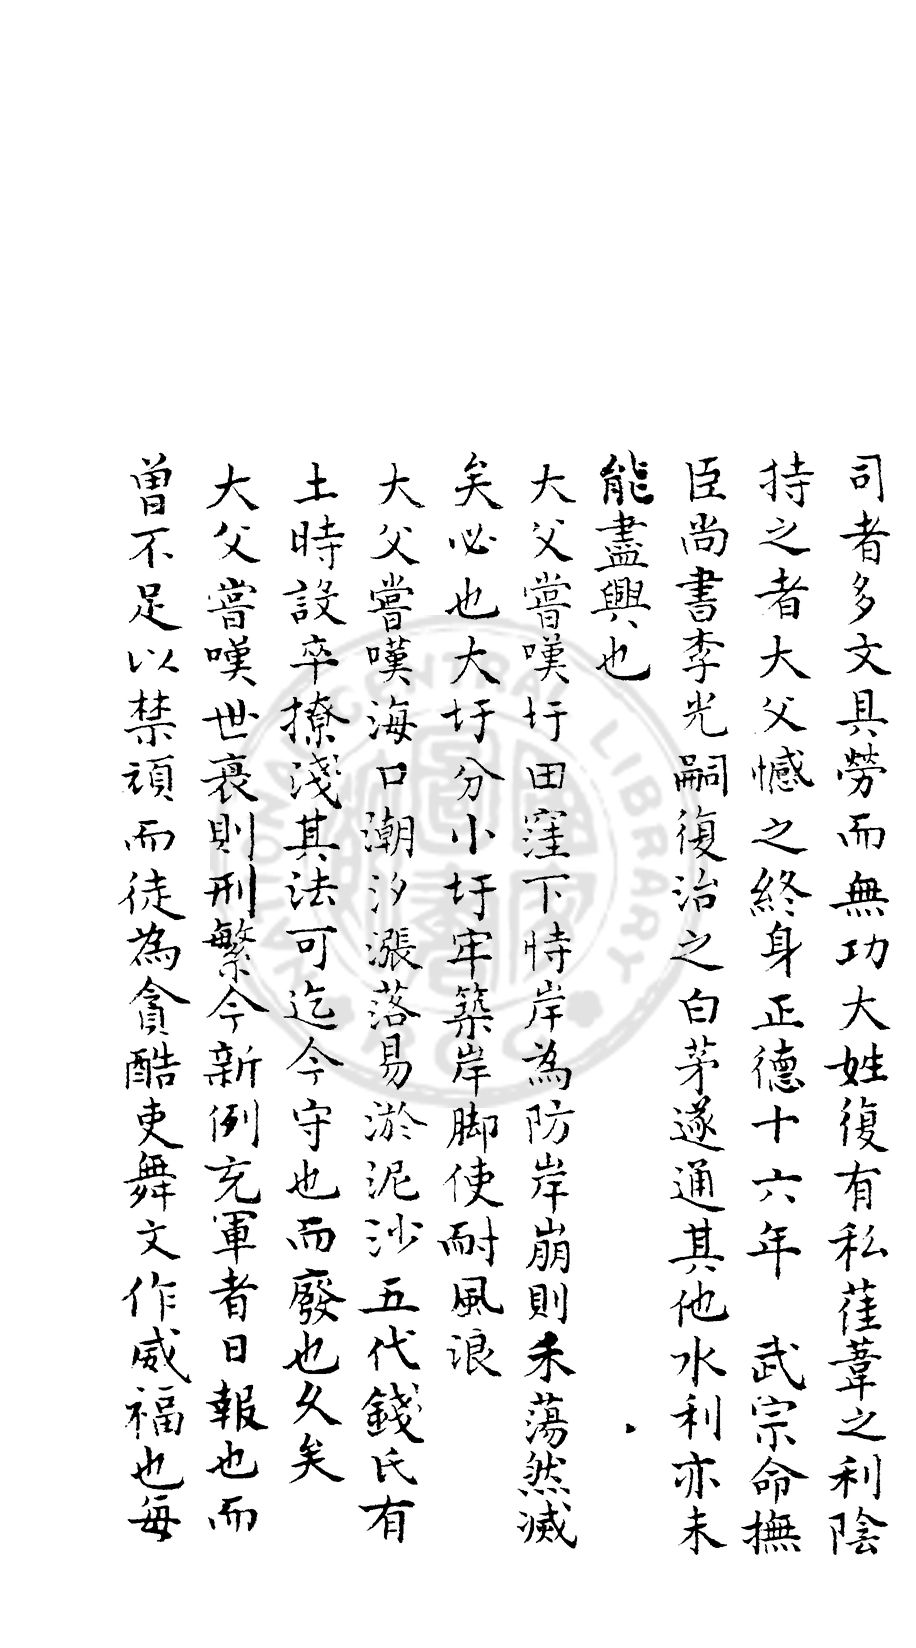 司者多文具勞而無功大姓復有私萑葦之利陰
持之者大父憾之終身正德十六年　武宗命撫
臣尚書李光嗣復治之白茅遂通其他水利亦未
能盡興也
大父嘗嘆圩田窪下恃岸為防岸崩則禾蕩然滅
矣必也大圩分小圩牢築岸脚使耐風浪
大父嘗嘆海口潮汐漲落易淤泥沙五代錢氏有
土時設卒撩淺其法可迄今守也而廢也久矣
大父嘗嘆世衰則刑繁今新例充軍者日報也而
曾不足以禁頑而徒為貪酷吏舞文作威福也每
NATIONAL CENTRAL LIBRARY